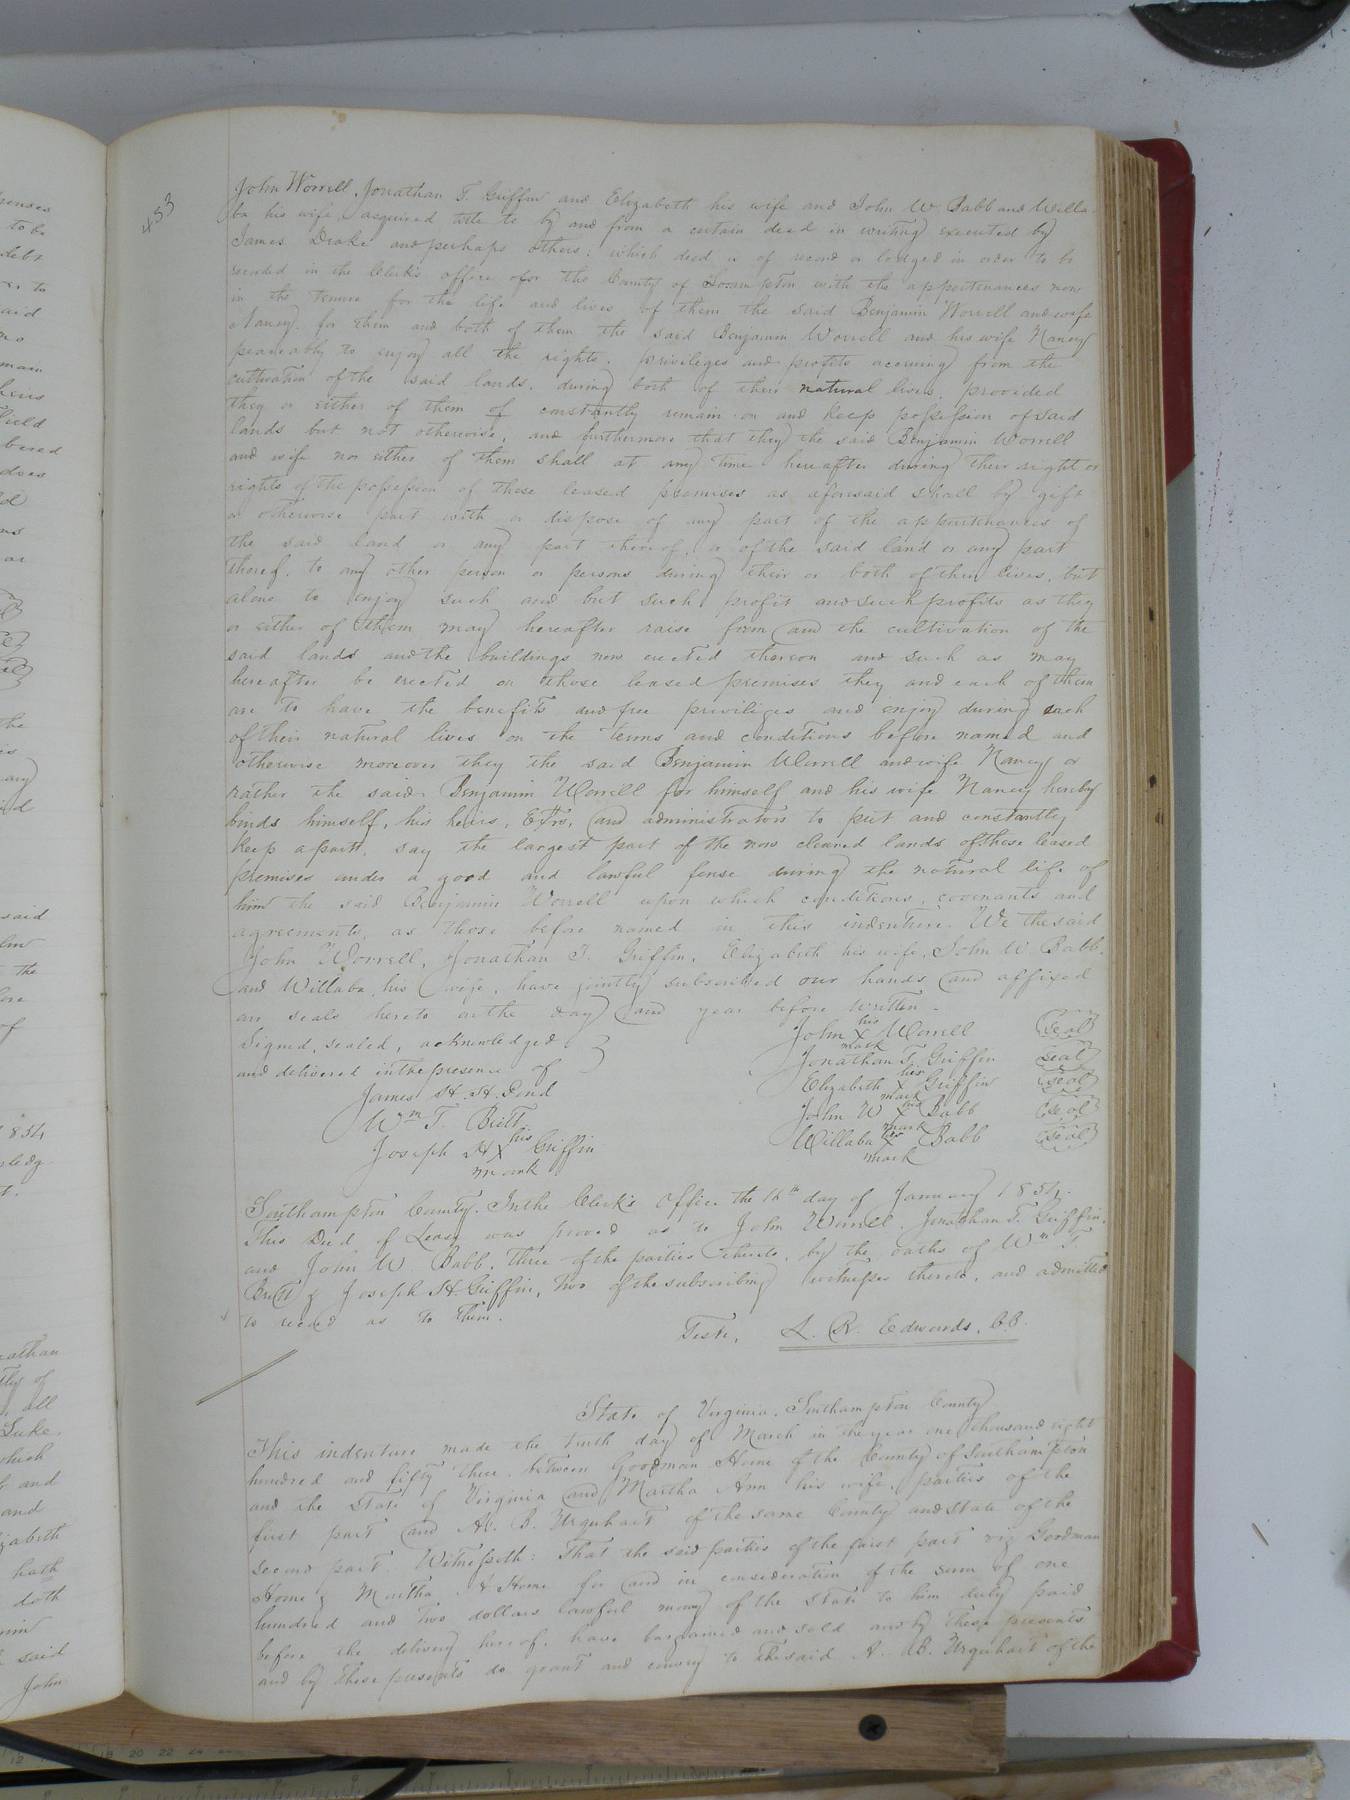 453
John Worrell, Jonathan T. Griffin and Elizabeth his wife and John W Babb and Willa-
ba his wife, acquired title to by and from a certain deed in writing executed by
James Drake and perhaps others; which deed is of record or lodged in order to be
recorded in the Clerk's office for the County of Southampton with the appertenances now
in the tenure for the life and lives of them the said Benjamin Worrell and wife
Nancy. for them and both of them the said Benjamin Worrell and his wife Nancy
peaceably to enjoy all the rights, privileges and profits accruing from the
cultivation of the said lands. during both of their natural lives, provided
they or either of them of constantly remain on and keep possession of said
lands but not otherwise, and furthermore that they the said Benjamin Worrell
and wife nor either of them shall at any time hereafter during their right or
rights of the possession of these leased premises as aforesaid shall by gift
or otherwise part with or dispose of any part of the appurtenances of
the said land or any part thereof, or of the said land or any part
thereof, to any other person or persons during their or both of their lives, but
alone to enjoy such and but such profit and such profits as they
or either of them may hereafter raise from and the cultivation of the
said lands and the buildings now erected thereon and such as may
hereafter be erected on those leased premises they and each of them
are to have the benefits and free priviliges and enjoy during each
of their natural lives on the terms and conditions before named and
otherwise moreover they the said Benjamin Worrell and wife Nancy or
rather the said Benjamin Worrell for himself and his wife Nancy hereby
binds himself, his heirs, Exrs, and administrators to put and constantly
keep a part, say the largest part of the now cleared lands of these leased
premises under a good and lawful fense during the natural life of
him the said Benjamin Worrell upon which conditions, covenants and
agreements, as those before named in this indenture. We the said
John Worrell, Jonathan T. Griffin, Elizabeth his wife, John W Babb.
and Willaba, his wife, have jointly subscribed our hands and affixed
our seals hereto on the day and year before written.
Signed, sealed, acknowledged
and delivered in the presence of
James H. H. Pond
Wm T. Britt
Joseph H his X mark Griffin
John his X mark Worrell (seal)
Jonathan T. Griffin (seal)
Elizabeth her X mark Griffin (seal)
John W his X mark Babb (seal)
Willaba her X mark Babb (seal)
Southampton County. In the Clerk's Office the 16th day of January 1854.
This Deed of Lease was proved as to John Worrell, Jonathan T. Griffin.
and John W Babb, three of the parties thereto, by the oaths of Wm T.
Britt & Joseph H Griffin, two of the subscribing witnesses thereto, and admitted
to record as to them.
Teste, L. R. Edwards, C.C.
State of Virginia, Southampton County
This indenture made the tenth day of March in the year one thousand eight
hundred and fifty three between Goodman Horne of the County of Southampton
and the State of Virginia and Martha Ann his wife, parties of the
first part and A. B. Urquhart of the same County and State of the
second part. Witnesseth: That the said parties of the first part viz Goodman
Horne & Martha A Horne for and in consideration of the sum of one
hundred and two dollars lawful money of the State to him duly paid
before the delivery hereof, have bargained and sold and by these presents
and by these presents do grant and convey to the said A. B. Urquhart of the